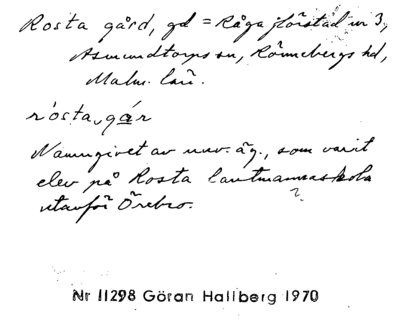 Rosta gård, gd = Råga Hörstad nr 3,
Asmundtorps sn, Rönnebergs hd,
Malm. län.
rósta,gár
Namngivet av nuv. äg., som varit
elev på Rosta lantmannaskola
utanför Örebro. ?
Nr 11298 Göran Hallberg 1970